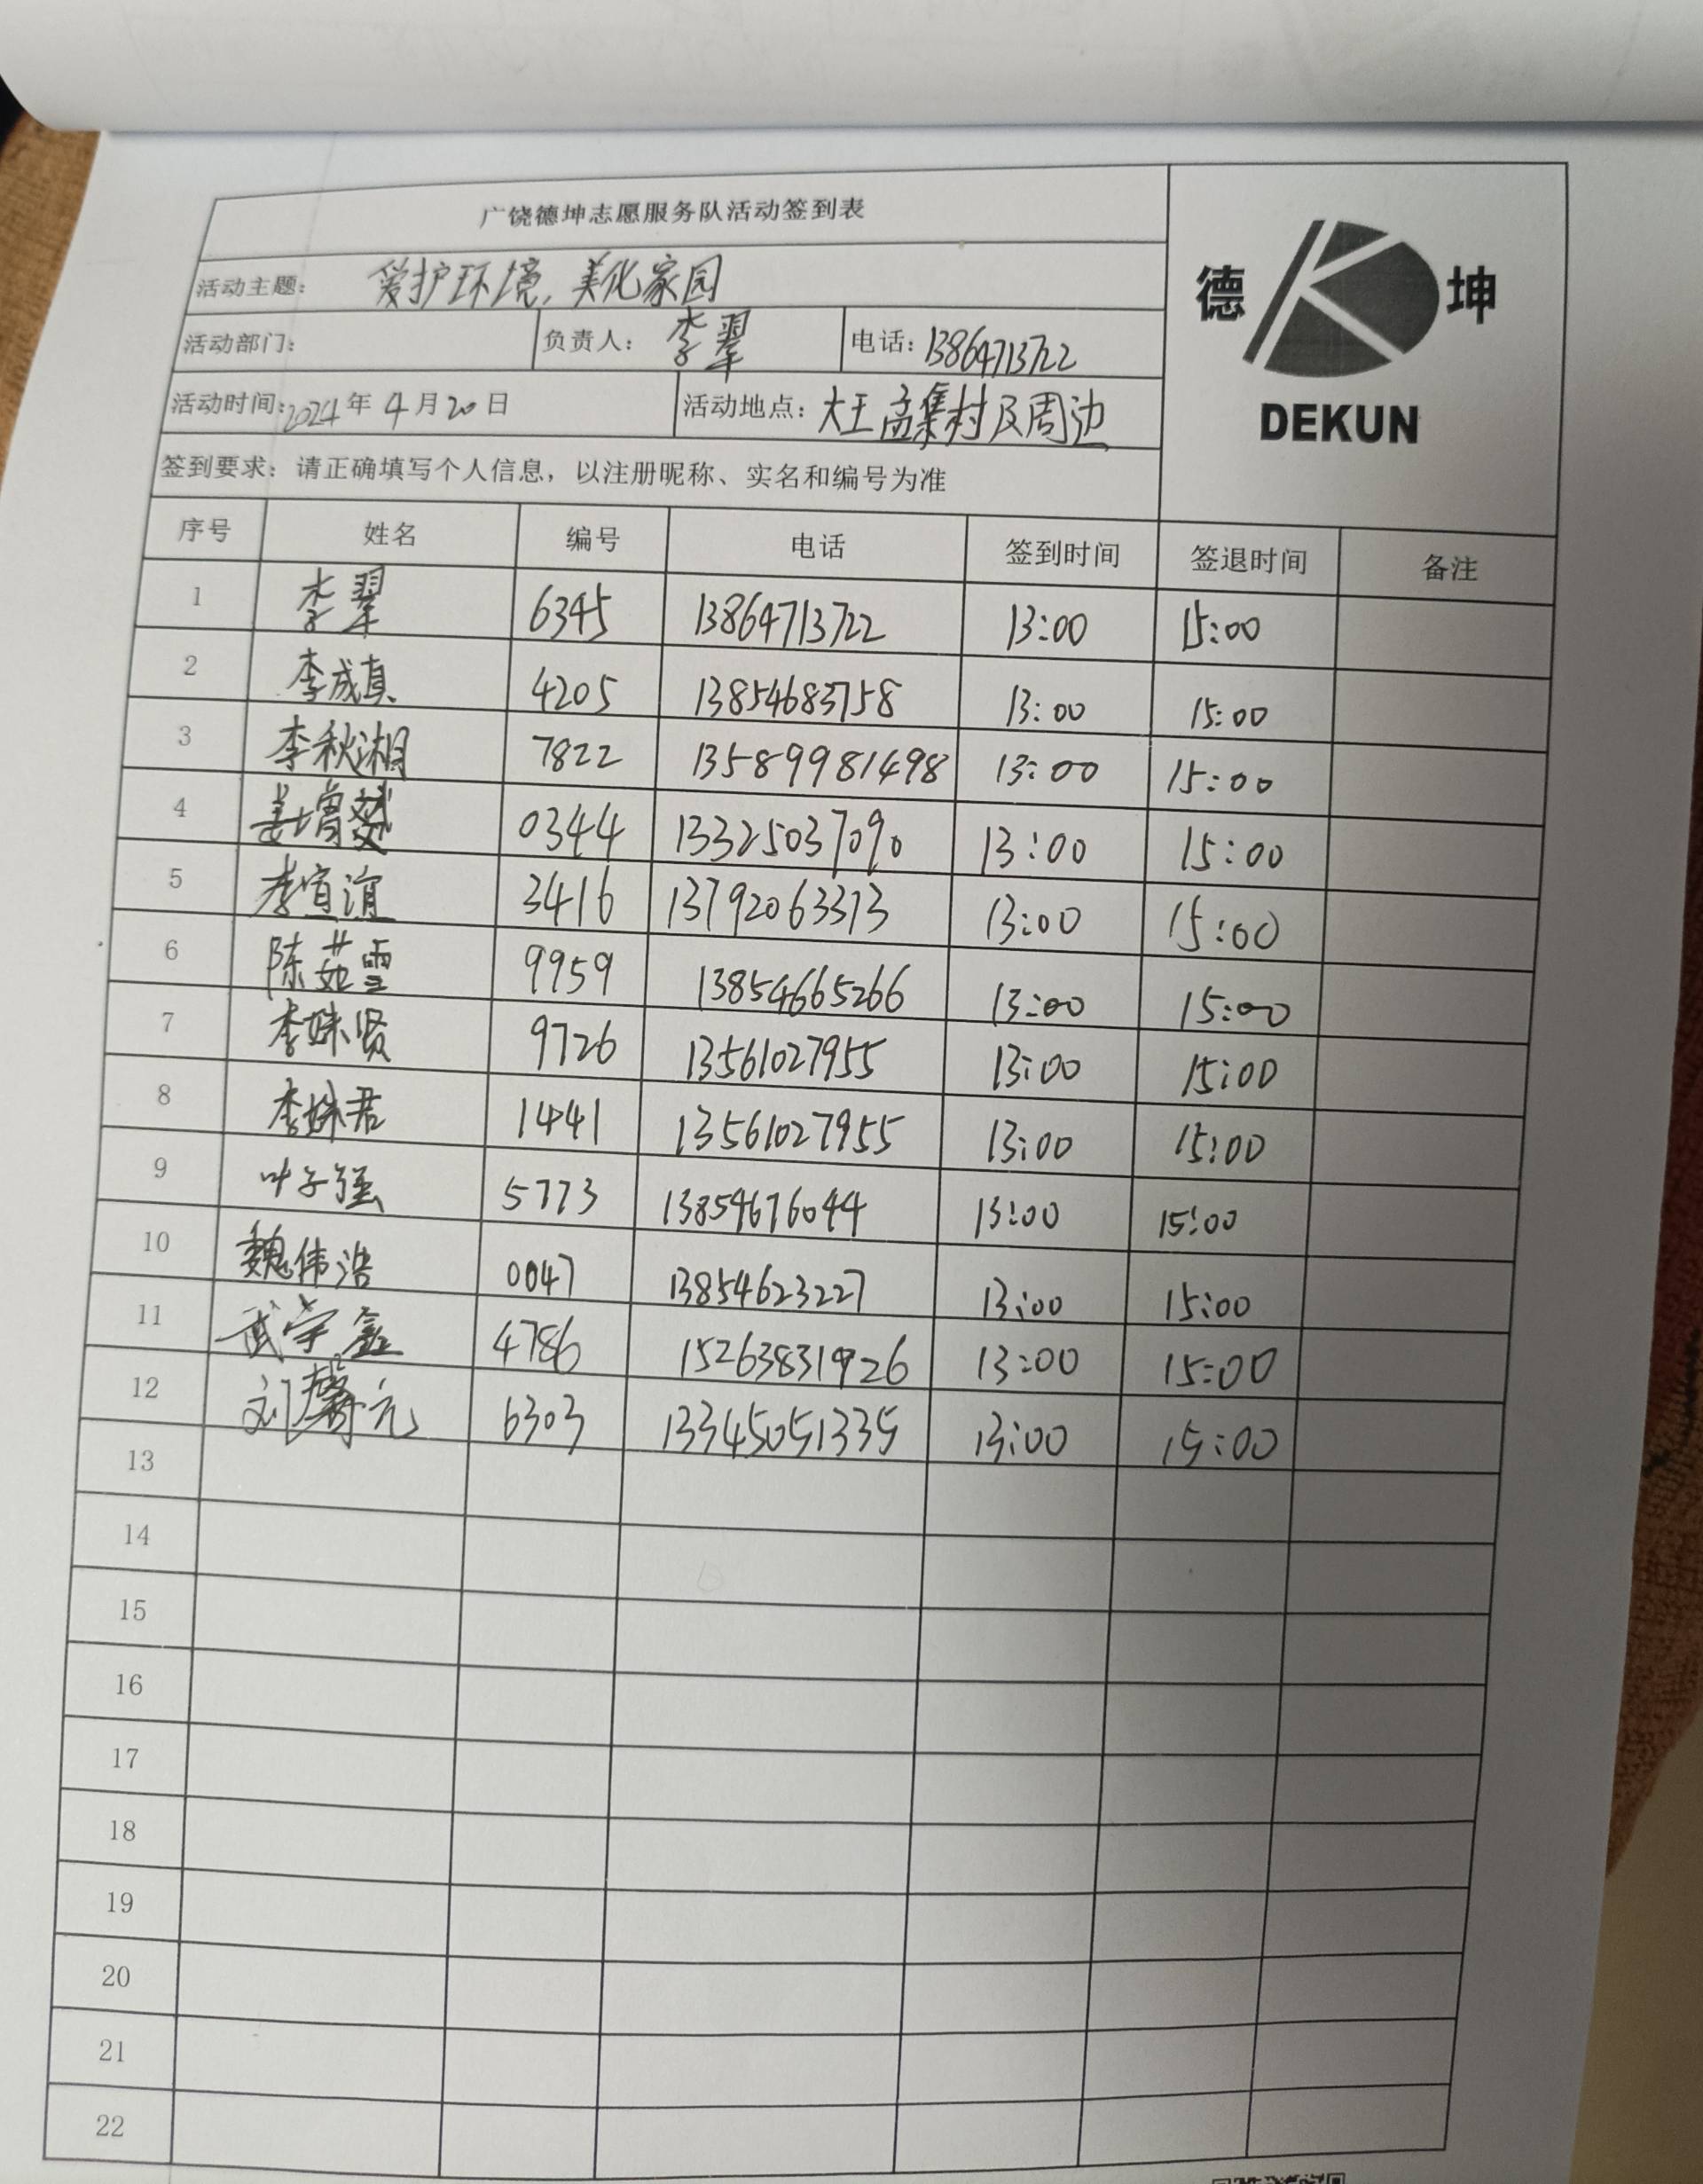 广饶德坤志愿服务队活动签到表
活动主题： 爱护环境，美化家园
德 坤
DEKUN
活动部门： 负责人： 李翠 电话：13864713722
活动时间：2024年4月20日 活动地点：大王孟集村及周边
签到要求：请正确填写个人信息，以注册昵称、实名和编号为准
序号 姓名 编号 电话 签到时间 签退时间 备注
1 李翠 6345 13864713722 13:00 15:00
2 李成真 4205 13854683758 13:00 15:00
3 李秋湘 7822 13589981498 13:00 15:00
4 姜增 0344 13325037090 13:00 15:00
5 李宣谊 3416 13792063373 13:00 15:00
6 陈茹雪 9959 13854665266 13:00 15:00
7 李姝贤 9726 13561027955 13:00 15:00
8 李姝君 1441 13561027955 13:00 15:00
9 叶子强 5773 13854676044 13:00 15:00
10 魏伟浩 0047 13854623227 13:00 15:00
11 武宗鑫 4786 13:00 15:00
12 刘馨元 6303 13345051335 13:00 15:00
13
14
15
16
17
18
19
20
21
22